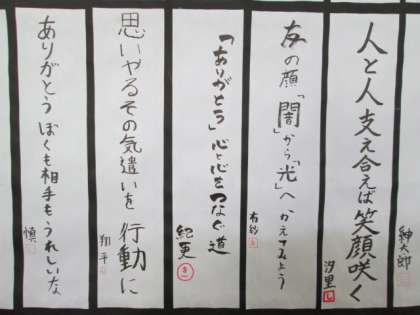 紳太郎
人と人支え合えば笑顔咲く
汐里
友の顔「闇」から「光」へかえてみよう
有紗
「ありがとう」心と心をつなぐ道
紀更
思いやるその気遣いを行動に
翔平
ありがとうぼくも相手もうれしいな
慎